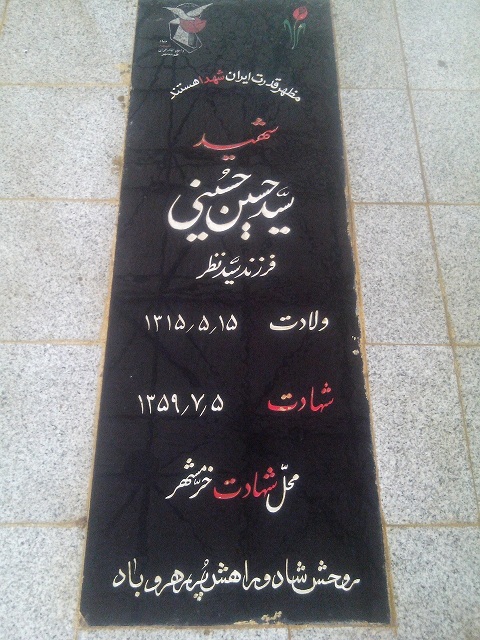 مظهر قدرت ایران شهدا هستند
شهید
سیّد حسین حُسینی
فرزند سیّد نظر
ولادت ۱۳۱۵٫۵٫۱۵
شهادت ۱۳۵۹٫۷٫۵
محلّ شهادت خرّمشهر
روحش شاد و راهش پُر رهرو باد